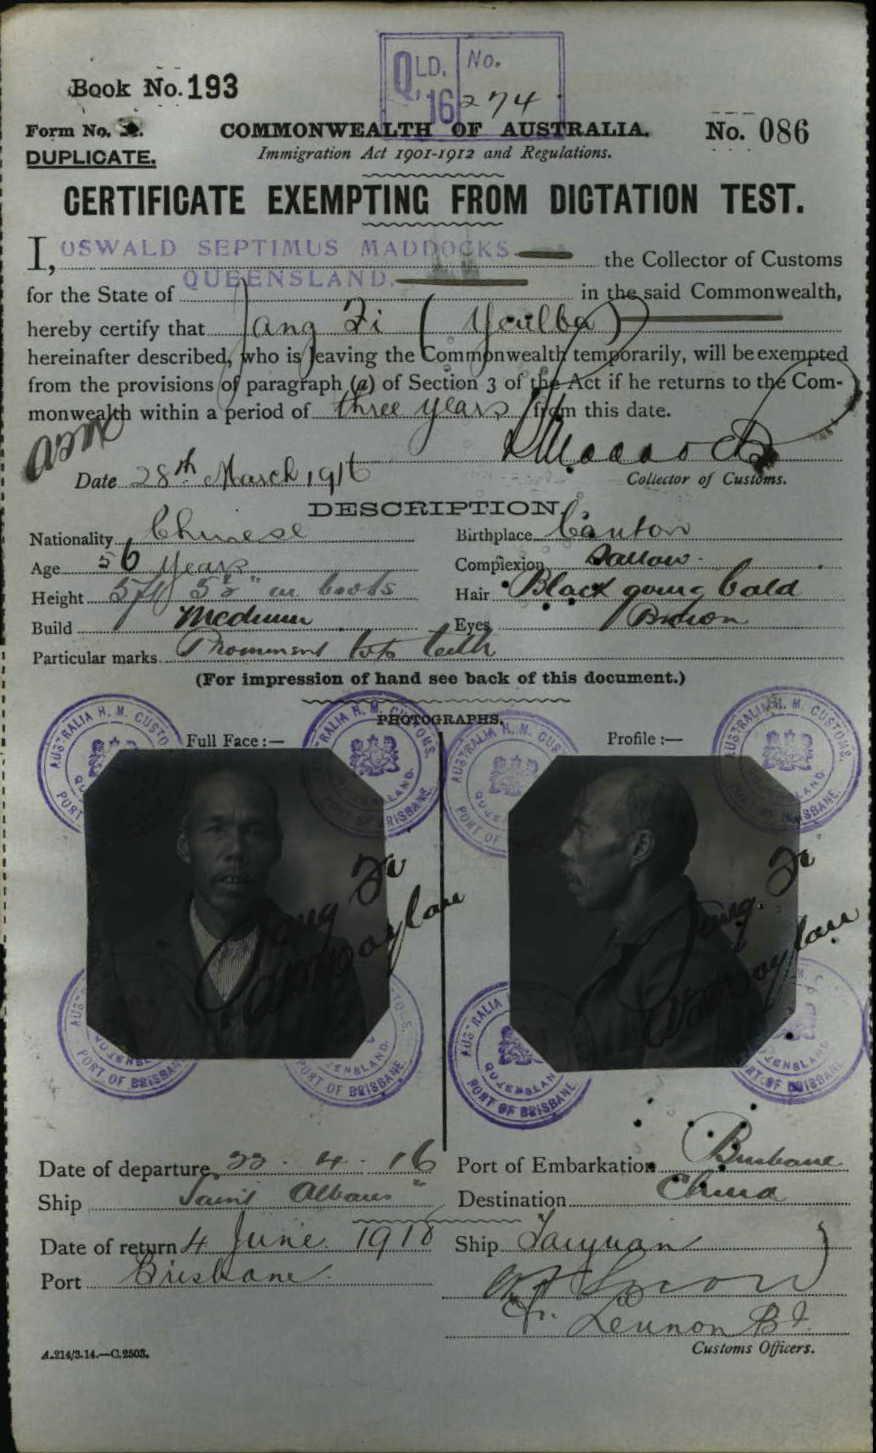 Book No. 193
QLD. No.
'16 274
Form No.
COMMONWEALTH OF AUSTRALIA.
No. 086
DUPLICATE.
Immigration Act 1901-1912 and Regulations.
CERTIFICATE EXEMPTING FROM DICTATION TEST.
I, OSWALD SEPTIMUS MADDOCKS the Collector of Customs
for the State of QUEENSLAND. in the said Commonwealth,
hereby certify that Jang Fi (Yeulba)
hereinafter described, who is leaving the Commonwealth temporarily, will be exempted
from the provisions of paragraph (a) of Section 3 of the Act if he returns to the Com-
monwealth within a period of three years from this date.
Date 28th March 1916
Collector of Customs.
DESCRIPTION.
Nationality Chinese
Birthplace Canton
Age 56 Years
Complexion Sallow.
Height 5ft 5½" in boots
Hair Black going bald
Build Medium
Eyes Brown
Particular marks Prominent top teeth
(For impression of hand see back of this document.)
PHOTOGRAPHS.
Full Face :—
Profile :—
AUSTRALIA H. M. CUSTOMS.
QUEENSLAND.
PORT OF BRISBANE
AUSTRALIA H. M. CUSTOMS.
QUEENSLAND.
PORT OF BRISBANE
Jang Fi
Jang Fi
Date of departure 22 . 4 . 16
Port of Embarkation Brisbane
Ship Saint Albans
Destination China
Date of return 4 June 1918
Ship Taiyuan
Port Brisbane.
Lennon
Customs Officers.
A.214/3.14.—C.2503.